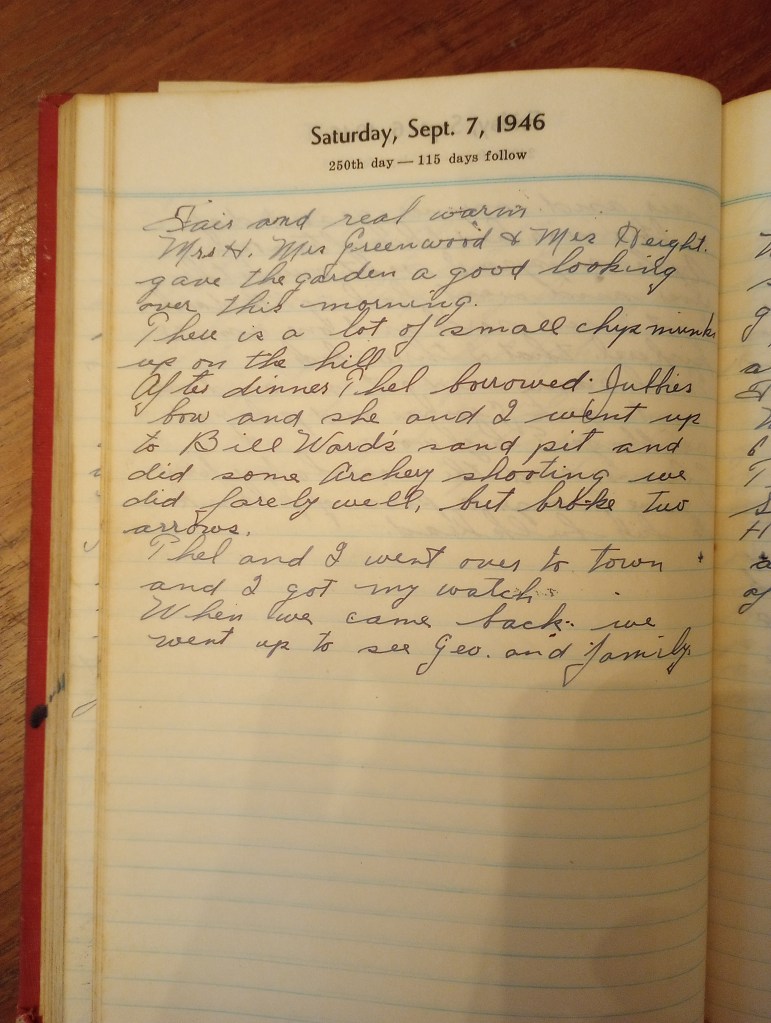 Saturday, Sept. 7, 1946
250th day — 115 days follow
Fair and real warm
Mrs H. Mrs Greenwood & Mrs Height.
gave the garden a good looking
over this morning.
There is a lot of small chypmunks
up on the hill
After dinner Thel borrowed
bow and she and I went up
to Bill Ward's sand pit and
did some Archery shooting we
did farely well, but broke two
arrows.
Thel and I went over to town
and I got my watch
When we came back we
went up to see Geo. and family